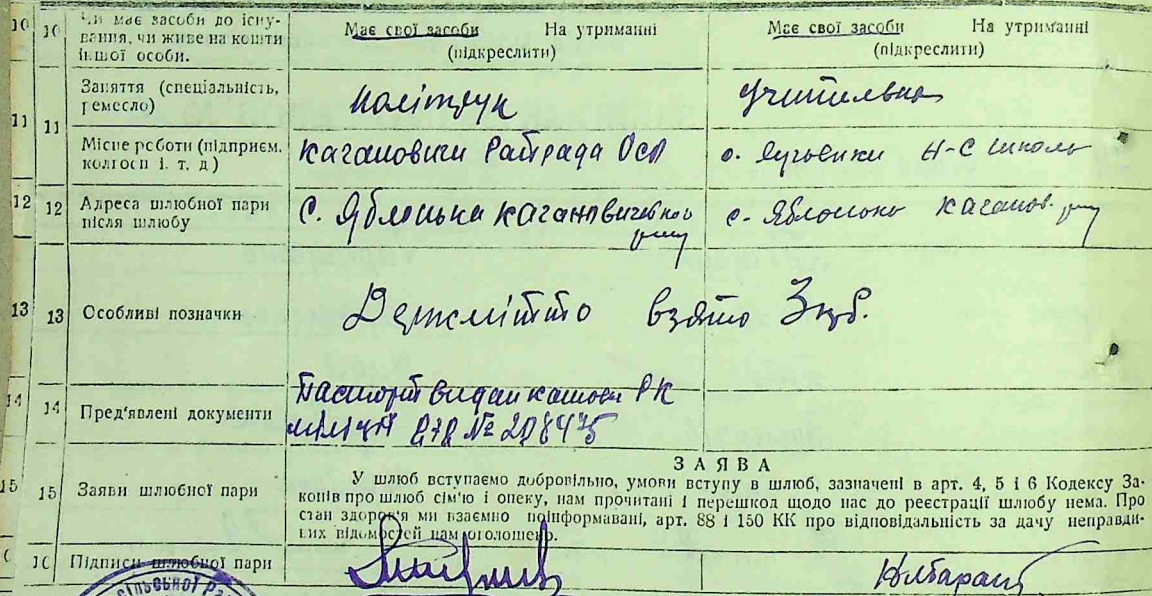 10 10 Чи має засоби до існу-
вання, чи живе на кошти
іншої особи.
Має свої засоби На утриманні
(підкреслити)
Має свої засоби На утриманні
(підкреслити)
11 11 Заняття (спеціальність,
ремесло)
політрук
учителька
Місце роботи (підприєм.
колгосп і. т. д)
Кагановичи Райрада
с. Н-С школа
12 12 Адреса шлюбної пари
після шлюбу
С. Яблонька
с. Яблонька Каганов.
13 13 Особливі позначки
взято 3 крб.
14 14 Пред'явлені документи
Паспорт видан РК
міліції № 208475
15 15 Заяви шлюбної пари
ЗАЯВА
У шлюб вступаємо добровільно, умови вступу в шлюб, зазначені в арт. 4, 5 і 6 Кодексу За-
конів про шлюб сім'ю і опеку, нам прочитані і перешкод щодо нас до реєстрації шлюбу нема. Про
стан здоров'я ми взаємно поінформавані, арт. 88 і 150 КК про відповідальність за дачу неправди-
вих відомостей нам оголошено.
16 Підписи шлюбної пари
сільської